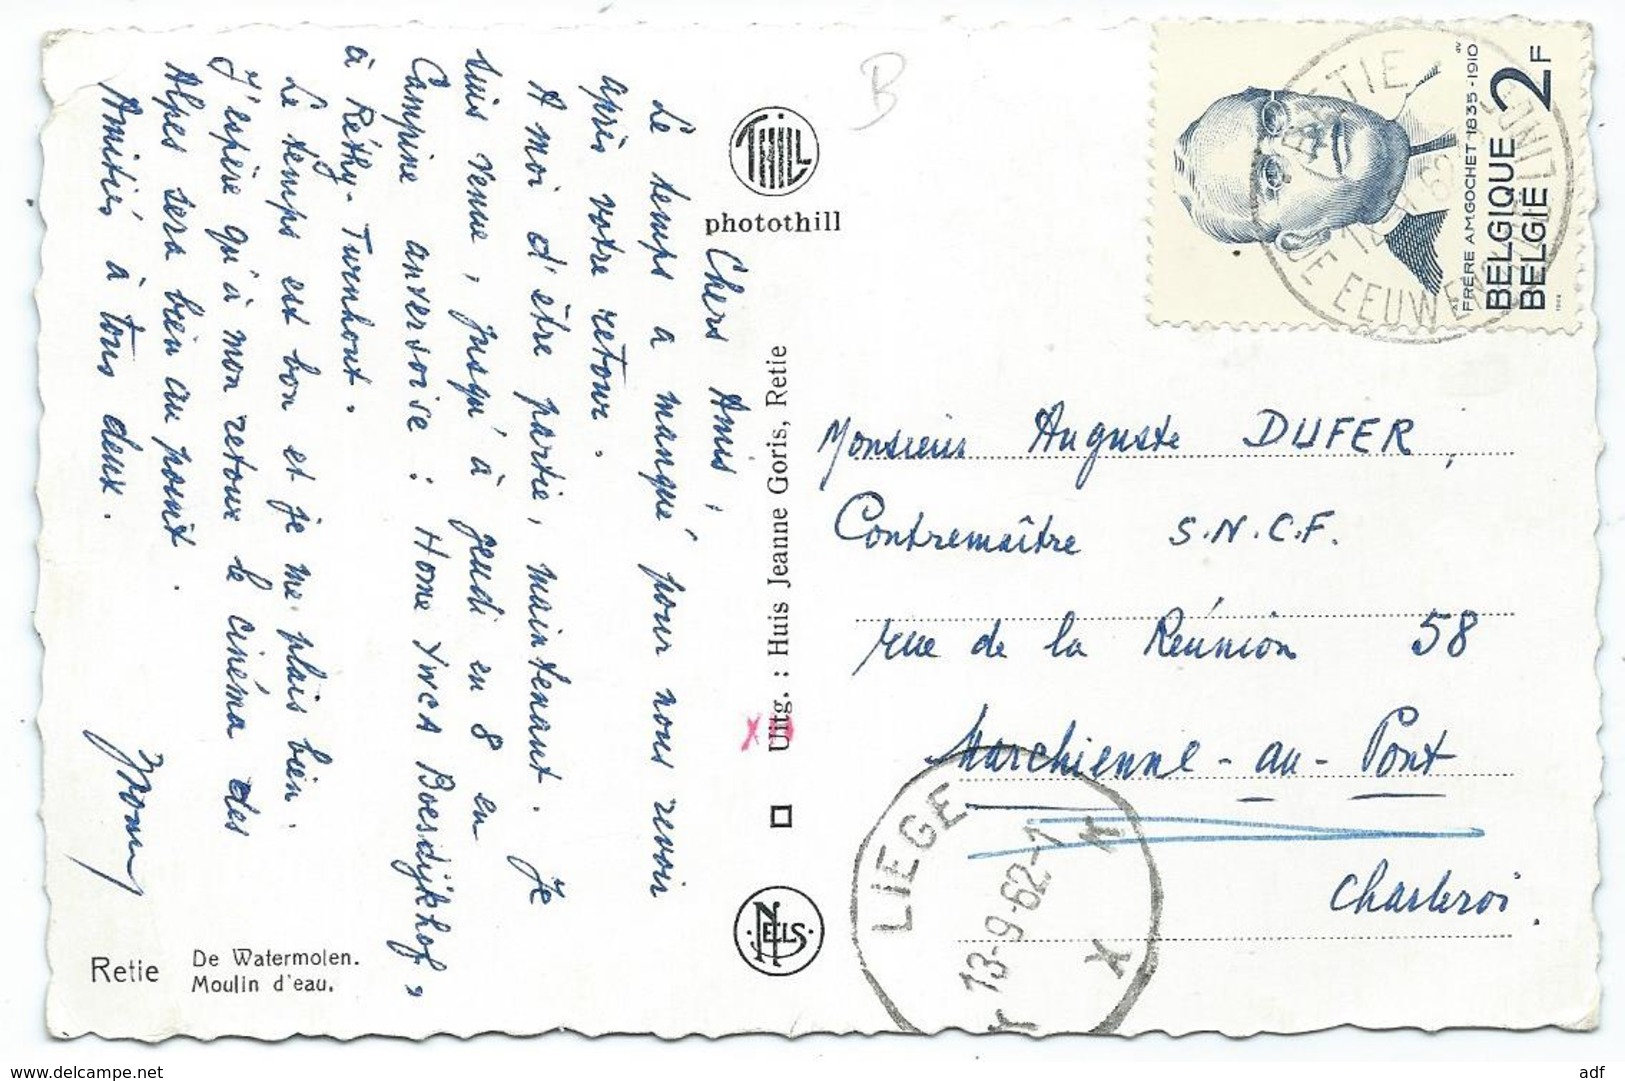 Chers Amis ;
Le temps a manqué pour vous revoir
après votre retour.
A moi d'être partie, maintenant. Je
suis venue, jusqu'à jeudi en 8 en
Campine anversoise : Home YWCA Boesdijkhof,
à Réthy-Turnhout.
Le temps est bon et je me plais bien.
J'espère qu'à mon retour le cinéma des
Alpes sera bien au point.
Amitiés à tous deux.
Retie
De Watermolen.
Moulin d'eau.
THILL
photothill
Uitg. : Huis Jeanne Goris, Retie
NELS
B
2F
BELGIQUE
BELGIË
FRÈRE A.M.GOCHET 1835-1910
RETIE
EEUWEN
Monsieur Auguste DUFER,
Contremaître S.N.C.F.
rue de la Réunion 58
Marchienne-au-Pont
Charleroi.
LIEGE X
13-9-62-1
X
adf
www.delcampe.net